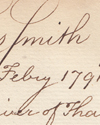 s Smith
Febry 179
iver of Tha